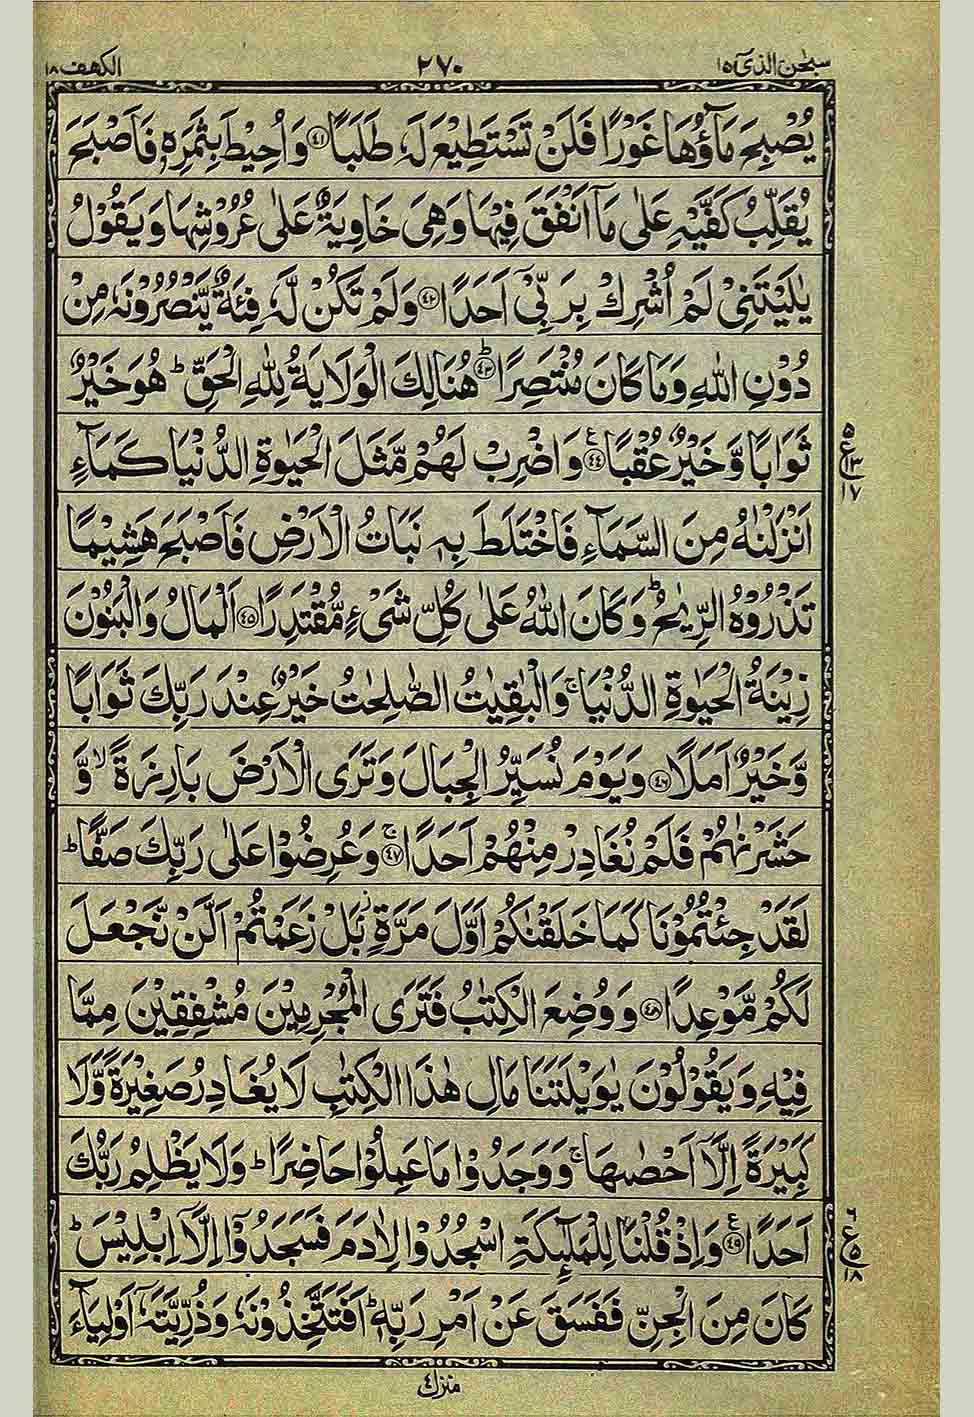 سبحٰن الذی ١٥
٢٧٠
الکھف ١٨
يُصْبِحَ مَآؤُهَا غَوْرًا فَلَنْ تَسْتَطِيْعَ لَهٗ طَلَبًا ﴿٤١﴾ وَاُحِيْطَ بِثَمَرِهٖ فَاَصْبَحَ
يُقَلِّبُ كَفَّيْهِ عَلٰى مَآ اَنْفَقَ فِيْهَا وَهِيَ خَاوِيَةٌ عَلٰى عُرُوْشِهَا وَيَقُوْلُ
يٰلَيْتَنِيْ لَمْ اُشْرِكْ بِرَبِّيْٓ اَحَدًا ﴿٤٢﴾ وَلَمْ تَكُنْ لَّهٗ فِئَةٌ يَّنْصُرُوْنَهٗ مِنْ
دُوْنِ اللّٰهِ وَمَا كَانَ مُنْتَصِرًا ؕ ﴿٤٣﴾ هُنَالِكَ الْوَلَايَةُ لِلّٰهِ الْحَقِّ ؕ هُوَ خَيْرٌ
ثَوَابًا وَّخَيْرٌ عُقْبًا ﴿٤٤﴾ ع وَاضْرِبْ لَهُمْ مَّثَلَ الْحَيٰوةِ الدُّنْيَا كَمَآءٍ
اَنْزَلْنٰهُ مِنَ السَّمَآءِ فَاخْتَلَطَ بِهٖ نَبَاتُ الْاَرْضِ فَاَصْبَحَ هَشِيْمًا
تَذْرُوْهُ الرِّيٰحُ ؕ وَكَانَ اللّٰهُ عَلٰى كُلِّ شَيْءٍ مُّقْتَدِرًا ﴿٤٥﴾ اَلْمَالُ وَالْبَنُوْنَ
زِيْنَةُ الْحَيٰوةِ الدُّنْيَا ۚ وَالْبٰقِيٰتُ الصّٰلِحٰتُ خَيْرٌ عِنْدَ رَبِّكَ ثَوَابًا
وَّخَيْرٌ اَمَلًا ﴿٤٦﴾ وَيَوْمَ نُسَيِّرُ الْجِبَالَ وَتَرَى الْاَرْضَ بَارِزَةً ۙ وَّ
حَشَرْنٰهُمْ فَلَمْ نُغَادِرْ مِنْهُمْ اَحَدًا ۚ ﴿٤٧﴾ وَعُرِضُوْا عَلٰى رَبِّكَ صَفًّا ؕ
لَقَدْ جِئْتُمُوْنَا كَمَا خَلَقْنٰكُمْ اَوَّلَ مَرَّةٍۢ بَلْ زَعَمْتُمْ اَلَّنْ نَّجْعَلَ
لَكُمْ مَّوْعِدًا ﴿٤٨﴾ وَوُضِعَ الْكِتٰبُ فَتَرَى الْمُجْرِمِيْنَ مُشْفِقِيْنَ مِمَّا
فِيْهِ وَيَقُوْلُوْنَ يٰوَيْلَتَنَا مَالِ هٰذَا الْكِتٰبِ لَا يُغَادِرُ صَغِيْرَةً وَّلَا
كَبِيْرَةً اِلَّآ اَحْصٰىهَا ۚ وَوَجَدُوْا مَا عَمِلُوْا حَاضِرًا ؕ وَلَا يَظْلِمُ رَبُّكَ
اَحَدًا ﴿٤٩﴾ ع وَاِذْ قُلْنَا لِلْمَلٰٓئِكَةِ اسْجُدُوْا لِاٰدَمَ فَسَجَدُوْٓا اِلَّآ اِبْلِيْسَ ؕ
كَانَ مِنَ الْجِنِّ فَفَسَقَ عَنْ اَمْرِ رَبِّهٖ ؕ اَفَتَتَّخِذُوْنَهٗ وَذُرِّيَّتَهٗٓ اَوْلِيَآءَ
٥ ع ١٣ ١٧
٦ ع ٥ ١٨
منزل ٤